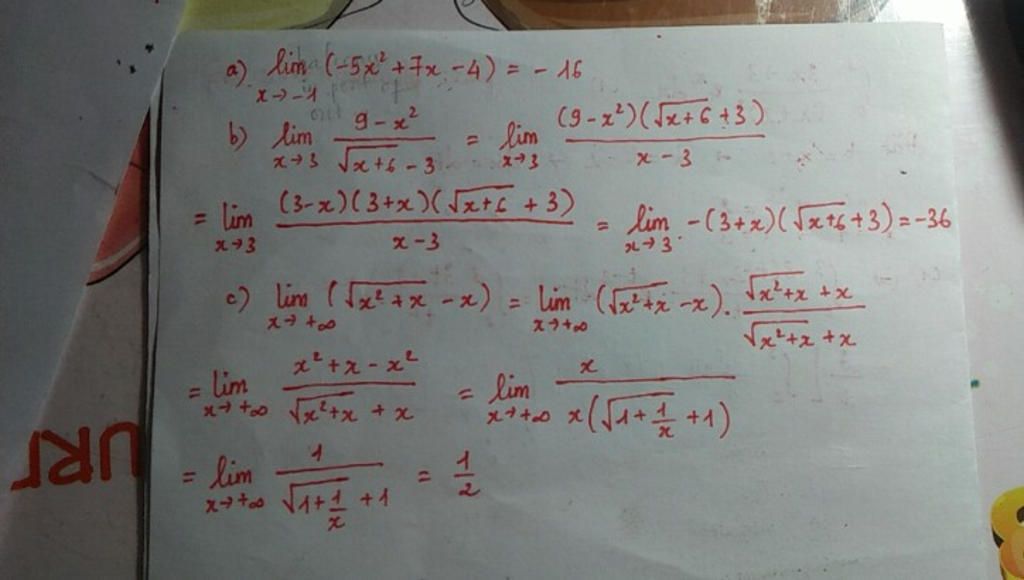 a) lim (-5x² + 7x - 4) = - 16
x → -1
b) lim x→3 (9 - x²)/(√(x+6) - 3) = lim x→3 (9 - x²)(√(x+6) + 3)/(x - 3)
= lim x→3 (3-x)(3+x)(√(x+6) + 3)/(x-3) = lim x→3 -(3+x)(√(x+6)+3) = -36
c) lim x→+∞ (√(x²+x) - x) = lim x→+∞ (√(x²+x) - x) . (√(x²+x) + x)/(√(x²+x) + x)
= lim x→+∞ (x² + x - x²)/(√(x²+x) + x) = lim x→+∞ x/(x(√(1+1/x) + 1))
= lim x→+∞ 1/(√(1+1/x) + 1) = 1/2